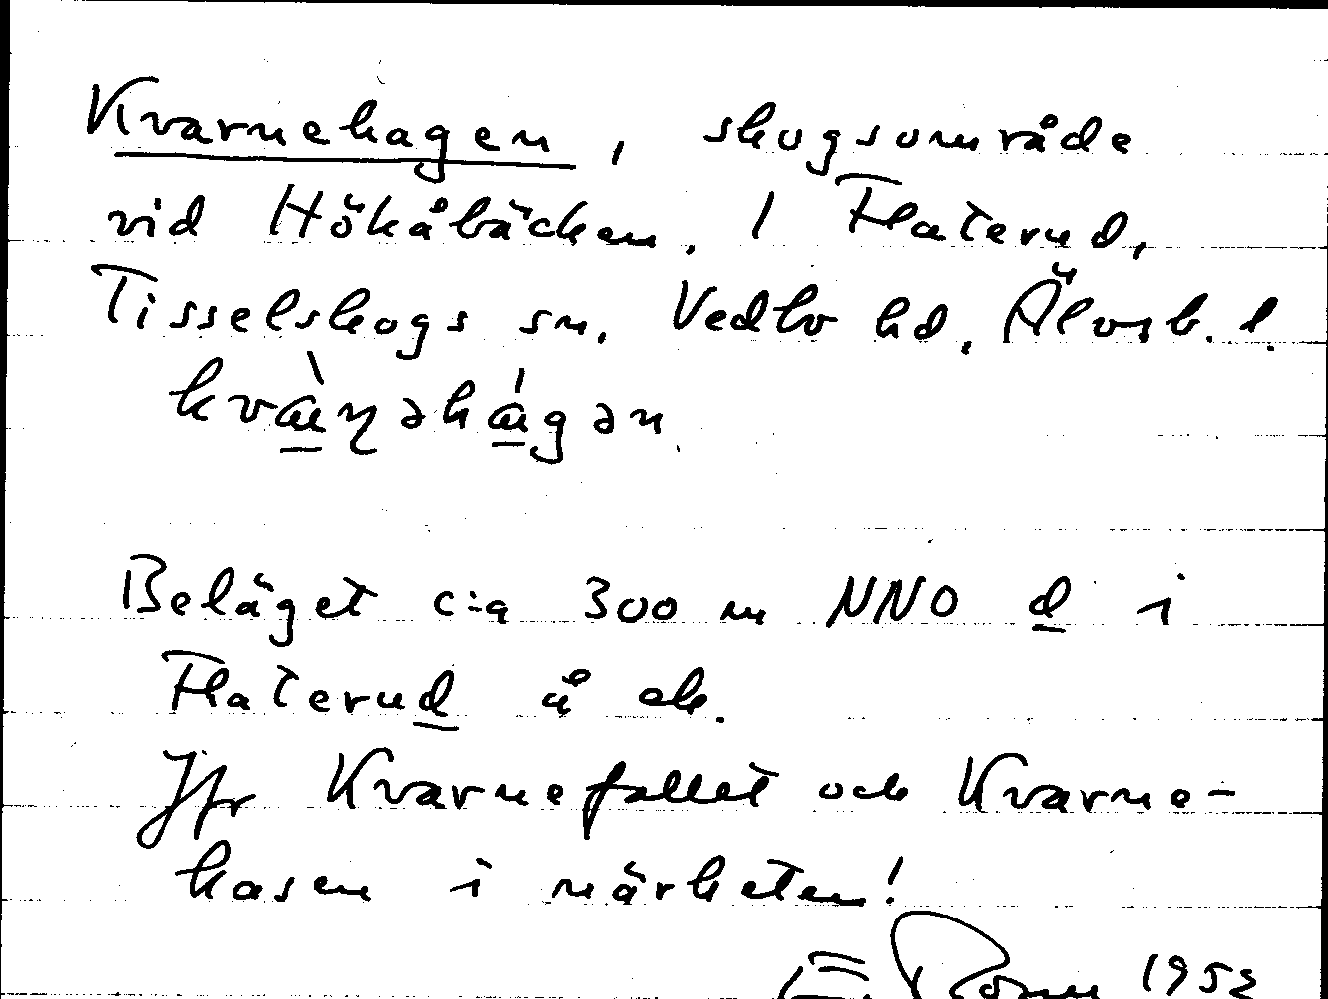 Kvarnehagen, skogsområde
vid Hökåbäcken. 1 Flaterud,
Tisselskogs sn, Vedbo hd, Älvsb. l.
kvàɳəhágən
Beläget c:a 300 m NNO d i
Flaterud å ek.
Jfr Kvarnefallet och Kvarne-
hasen i närheten!
1952